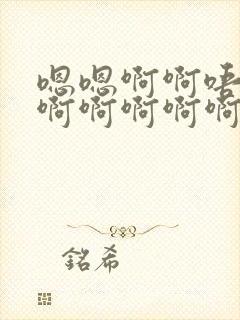 嗯嗯啊啊唔
啊啊啊啊啊
銘希